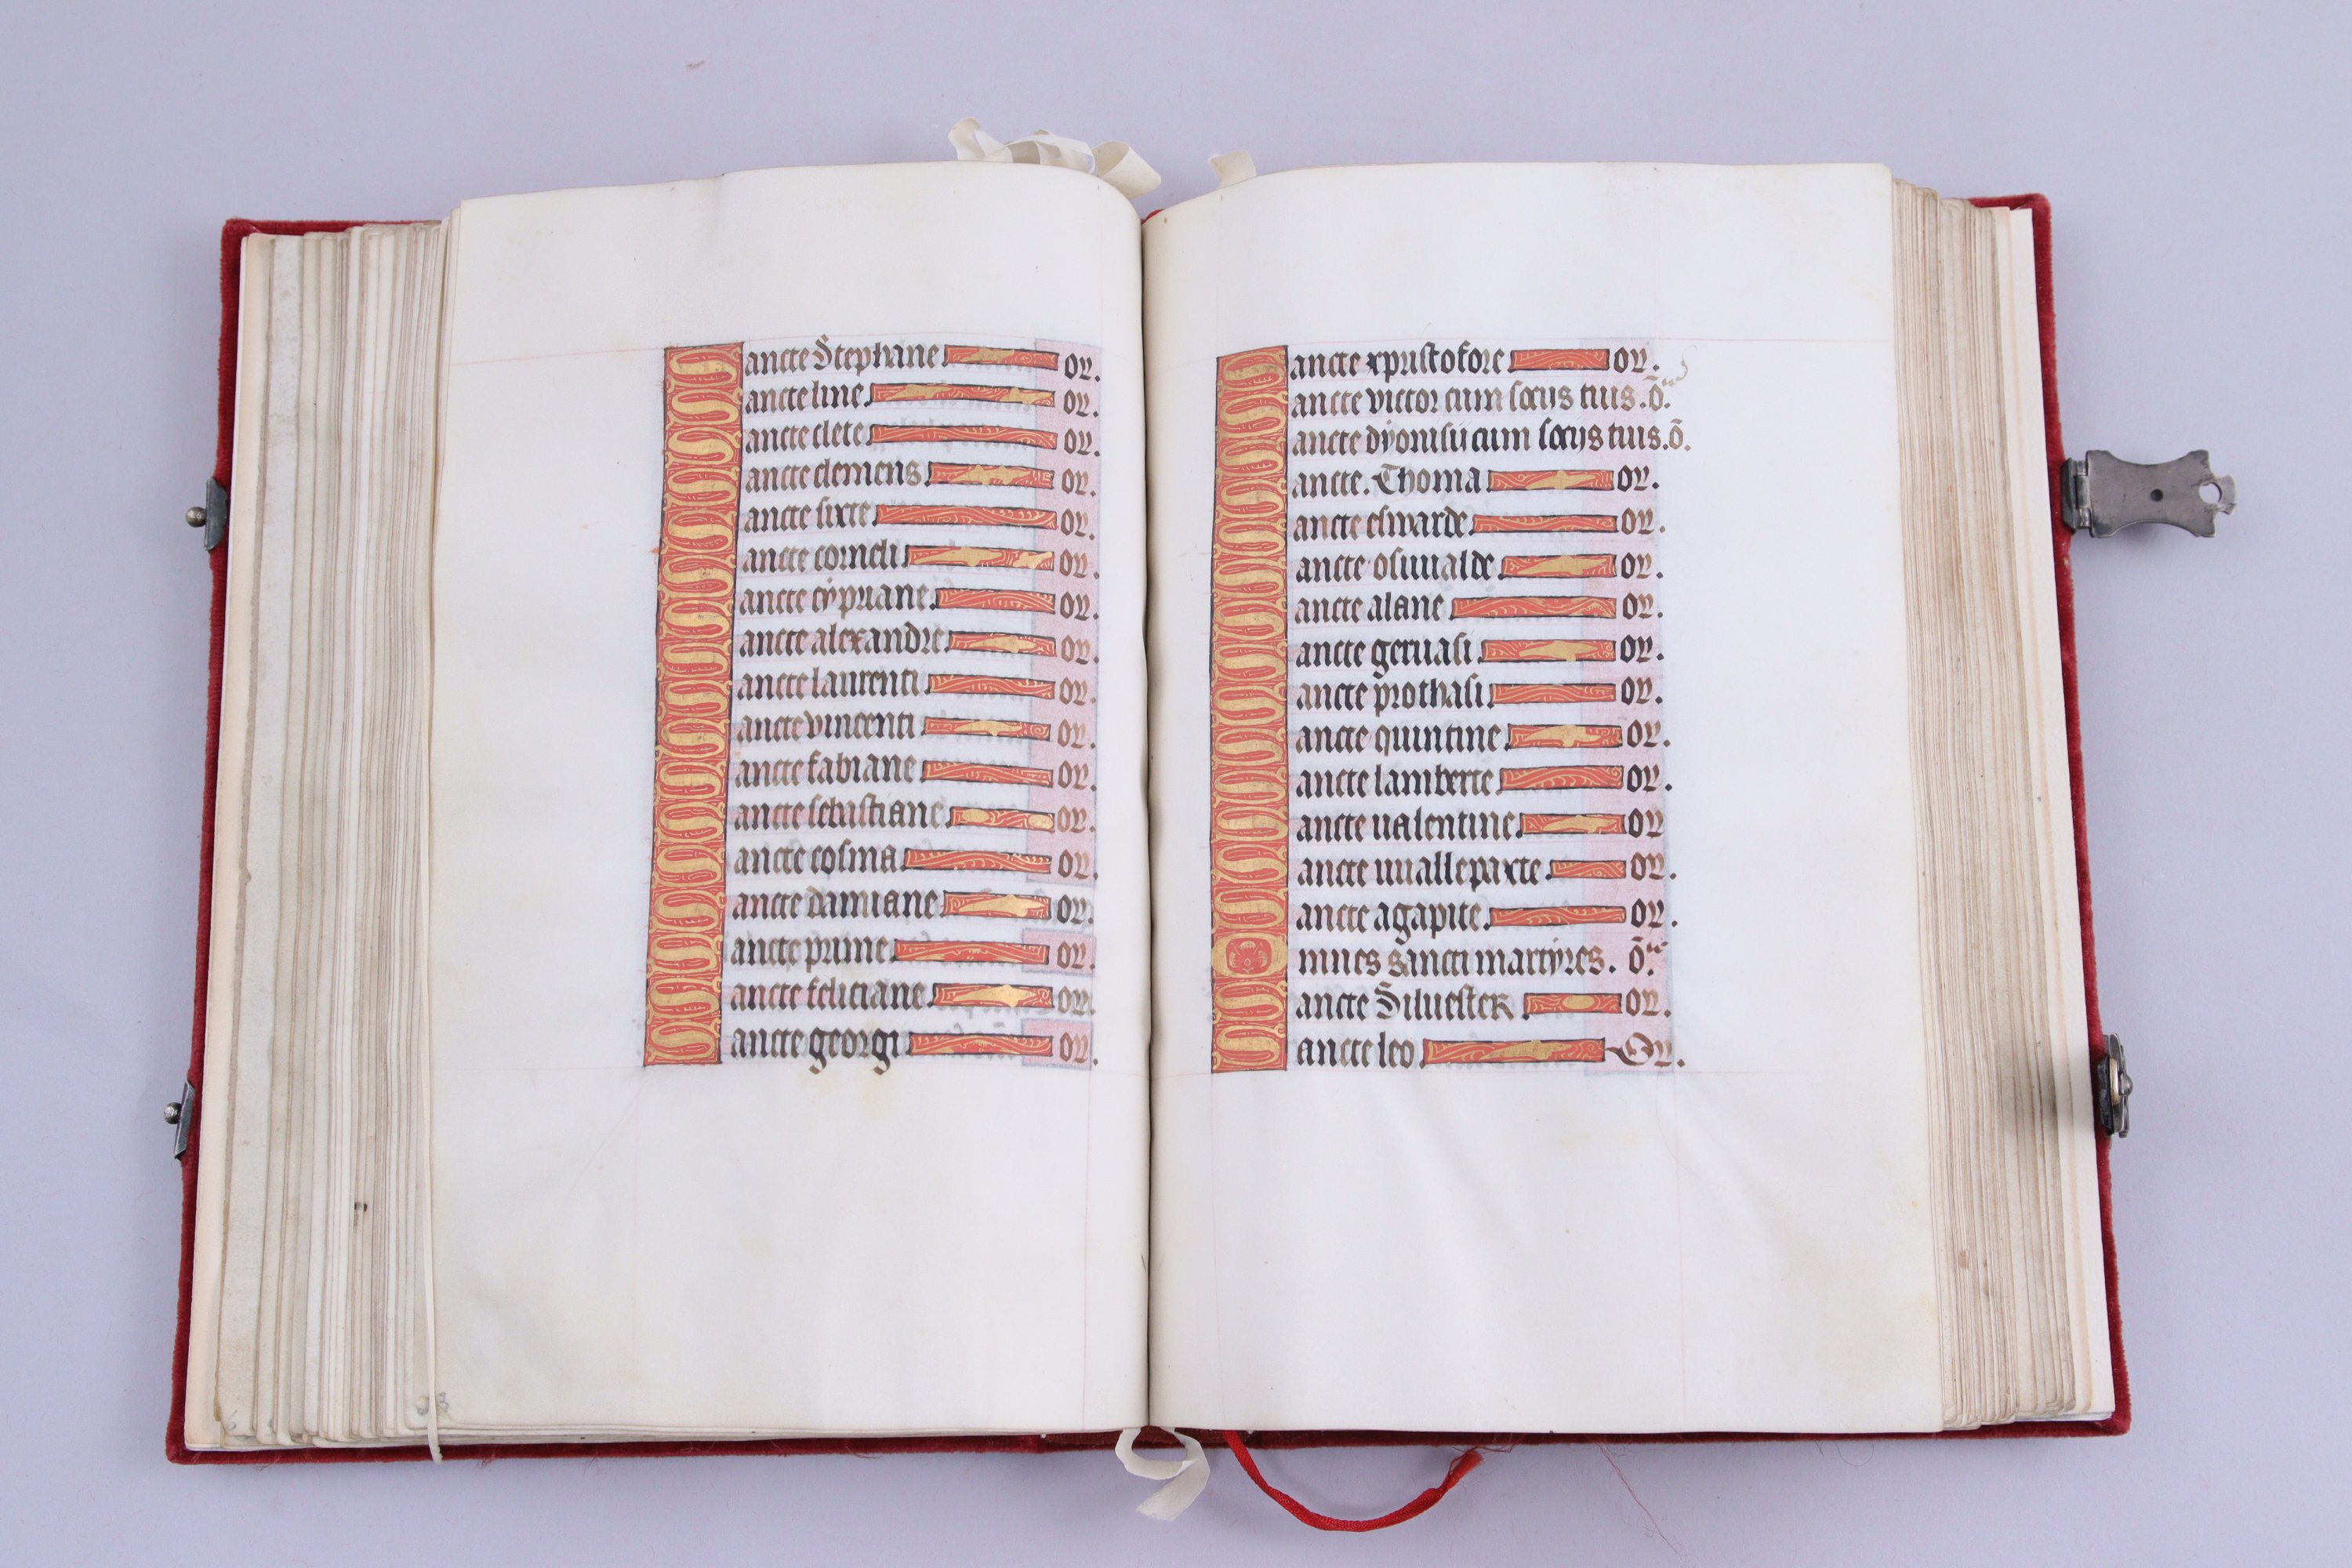 Sancte Stephane or.
Sancte line or.
Sancte clete or.
Sancte clemens or.
Sancte sixte or.
Sancte corneli or.
Sancte cypriane or.
Sancte alexandre or.
Sancte laurenti or.
Sancte vincenti or.
Sancte fabiane or.
Sancte sebastiane or.
Sancte cosma or.
Sancte damiane or.
Sancte prime or.
Sancte feliciane or.
Sancte georgi or.
Sancte xpristofore or.
Sancte victor cum socijs tuis. õ.
Sancte dyonisii cum socijs tuis. õ.
Sancte. Thoma or.
Sancte eswarde or.
Sancte osuualde or.
Sancte albane or.
Sancte geruasi or.
Sancte prothasi or.
Sancte quintine or.
Sancte lamberte or.
Sancte ualentine or
Sancte agapite. or.
Omnes sancti martyres. õ.
Sancte Siluester or.
Sancte leo Or.